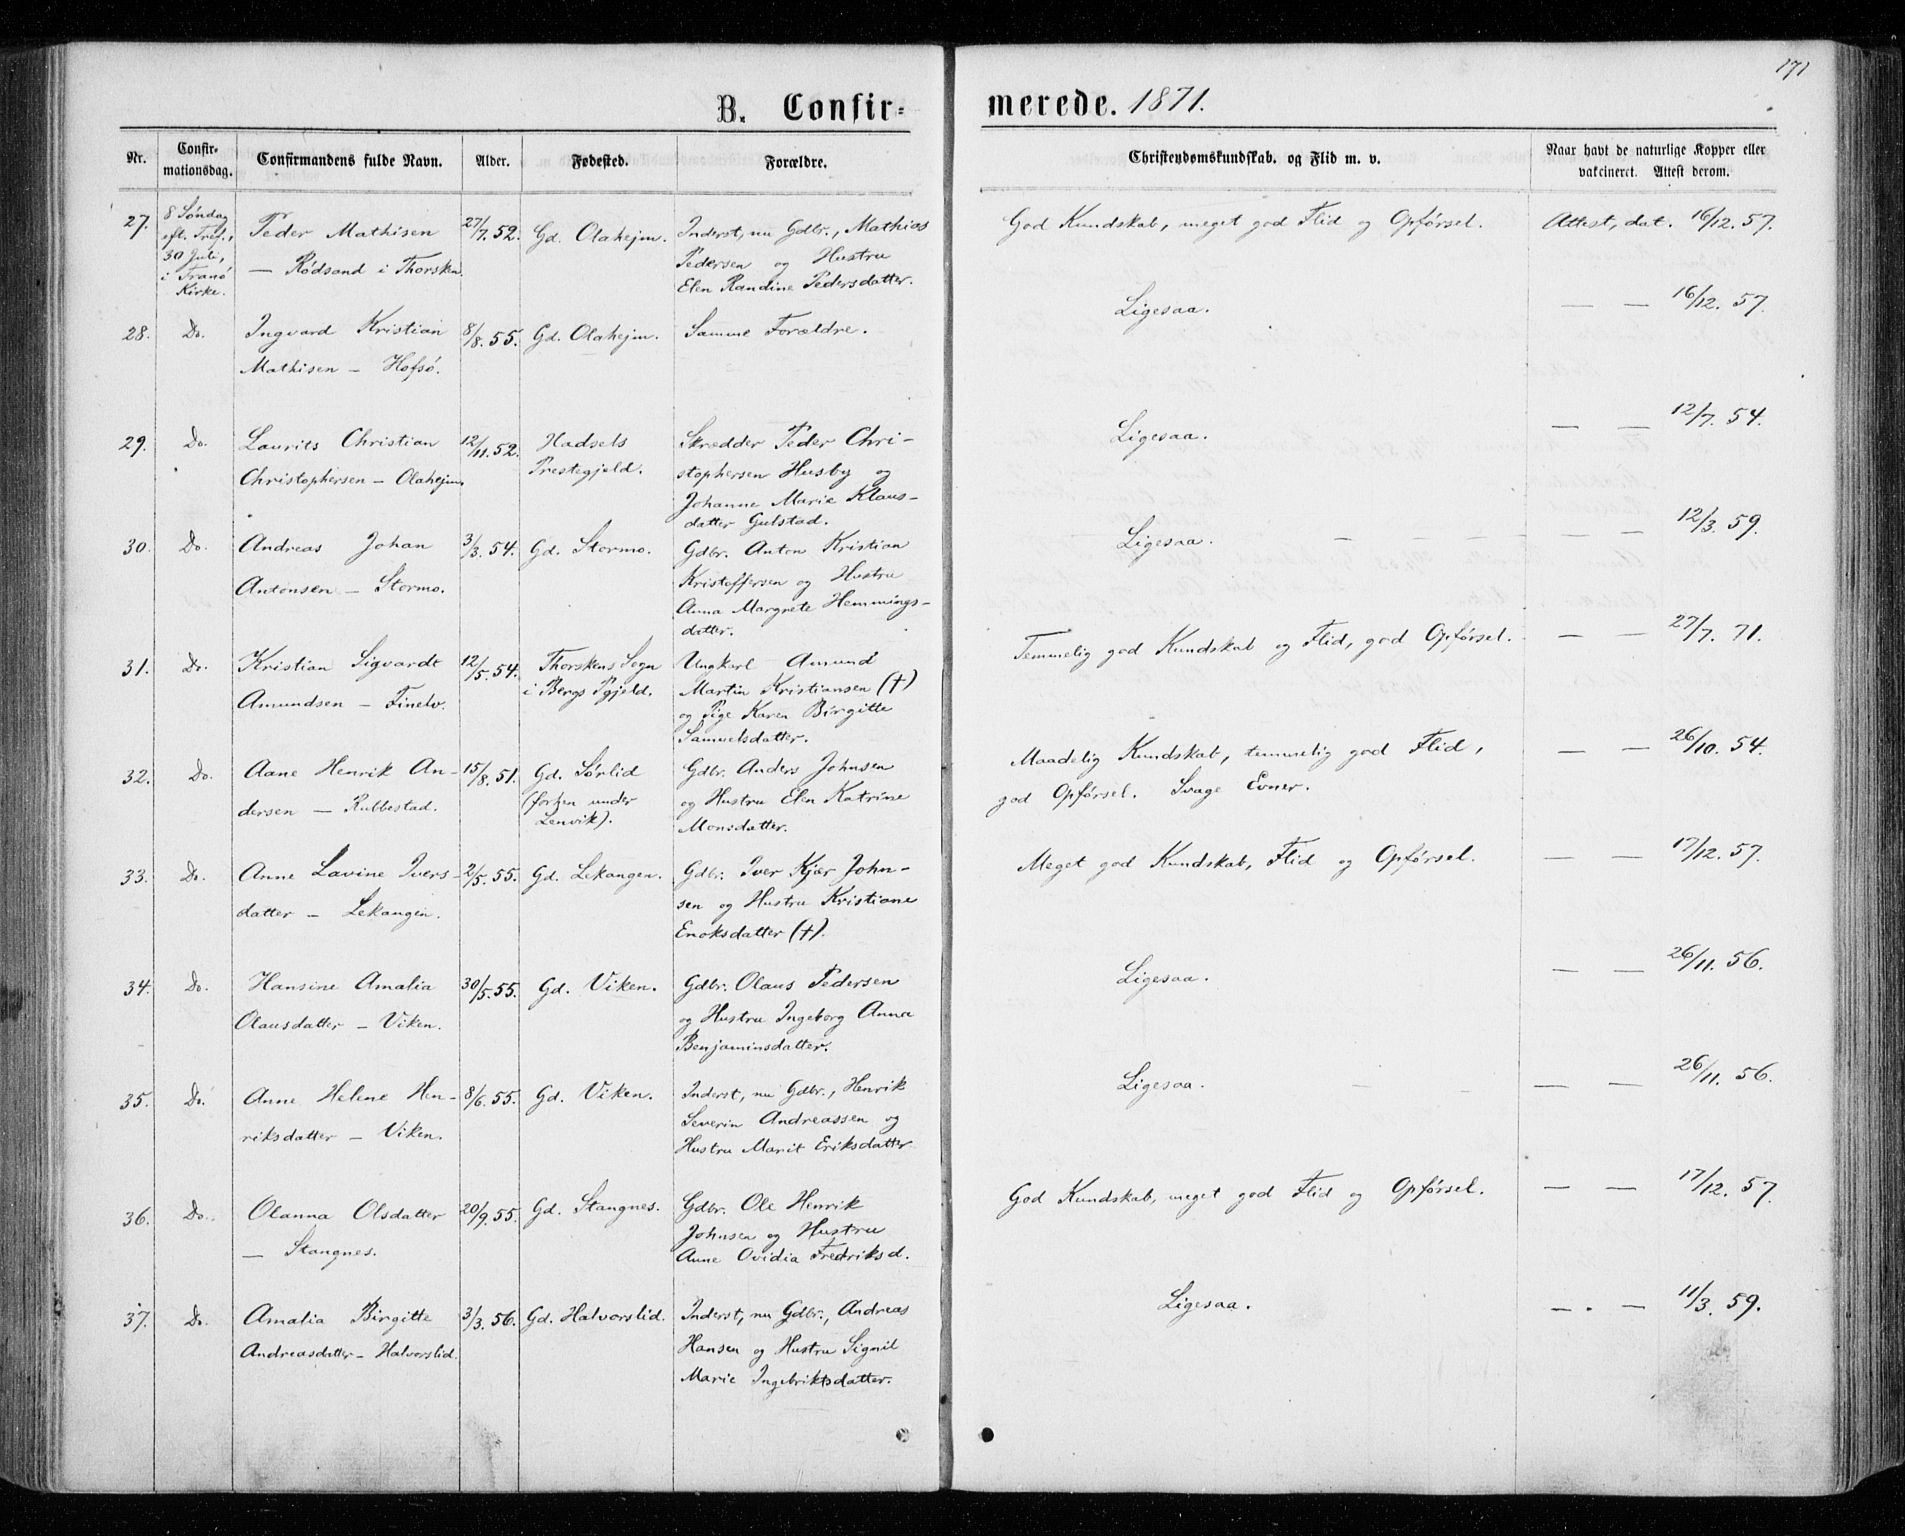 171
B. Confir=
merede. 1871.
Nr.
Confir-
mationsdag.
Confirmandens fulde Navn.
Alder.
Fødested.
Forældre.
Christendomskundskab. og Flid m. v.
Naar havt de naturlige Kopper eller
vakcineret. Attest derom.
27.
8 Søndag
eft. Tref.,
30 Juli,
i Tranø
Kirke.
Peder Mathisen
— Rødsand i Thorsken
27/7. 52.
Gd. Olahejm.
Inderst, nu Gdbr., Mathias
Pedersen og Hustru
Elen Randine Pedersdatter.
God Kundskab, meget god Flid og Opførsel.
Attest, dat. 16/12. 57.
28.
Do.
Ingvard Kristian
Mathisen — Hofsø.
8/8. 55.
Gd. Olahejm.
Samme Forældre.
Ligesaa.
— — 16/12. 57.
29.
Do.
Laurits Christian
Christophersen — Olahejm
12/11. 52.
Hadsels
Prestegjeld.
Skrædder Peder Chri-
stophersen Husby og
Johanne Marie Klaus-
datter Gulstad.
Ligesaa.
— — 12/7. 54.
30.
Do.
Andreas Johan
Antonsen — Stormo.
3/3. 54.
Gd. Stormo.
Gdbr. Anton Kristian
Kristoffersen og Hustru
Anna Margrete Hemmings-
datter.
Ligesaa.
— — 12/3. 59.
31.
Do.
Kristian Sigvardt
Amundsen — Finelv.
12/5. 54.
Thorskens Sogn
i Bergs Pgjeld.
Ungkarl Amund
Martin Kristiansen (†)
og Pige Karen Birgitte
Samuelsdatter.
Temmelig god Kundskab og Flid, god Opførsel.
— — 27/7. 71.
32.
Do.
Aane Henrik An-
dersen — Rubbestad.
15/8. 51.
Gd. Sørlid
(forhen under
Lenvik).
Gdbr. Anders Johnsen
og Hustru Elen Katrine
Monsdatter.
Maadelig Kundskab, temmelig god Flid,
god Opførsel. Svage Evner.
— — 26/10. 54.
33.
Do.
Anne Lavine Ivers-
datter — Lekangen.
2/5. 55.
Gd. Lekangen.
Gdbr. Iver Kjær John-
sen og Hustru Kristiane
Enoksdatter (†).
Meget god Kundskab, Flid og Opførsel.
— — 17/12. 57.
34.
Do.
Hansine Amalia
Olausdatter — Viken.
30/5. 55.
Gd. Viken.
Gdbr. Olaus Pedersen
og Hustru Ingeborg Anna
Benjaminsdatter.
Ligesaa.
— — 26/11. 56.
35.
Do.
Anne Helene Hen-
riksdatter — Viken.
8/6. 55.
Gd. Viken.
Inderst, nu Gdbr., Henrik
Severin Andreassen og
Hustru Marit Eriksdatter
Ligesaa.
— — 26/11. 56.
36.
Do.
Olanna Olsdatter
— Stangnes.
20/9. 55.
Gd. Stangnes.
Gdbr. Ole Henrik
Johnsen og Hustru
Anne Ovidia Fredriksd.
God Kundskab, meget god Flid og Opførsel.
— — 17/12. 57.
37.
Do.
Amalia Birgitte
Andreasdatter — Halvorslid.
3/3. 56.
Gd. Halvorslid.
Inderst, nu Gdbr., Andreas
Hansen og Hustru Signil
Marie Ingebriktsdatter.
Ligesaa.
— — 11/3. 59.